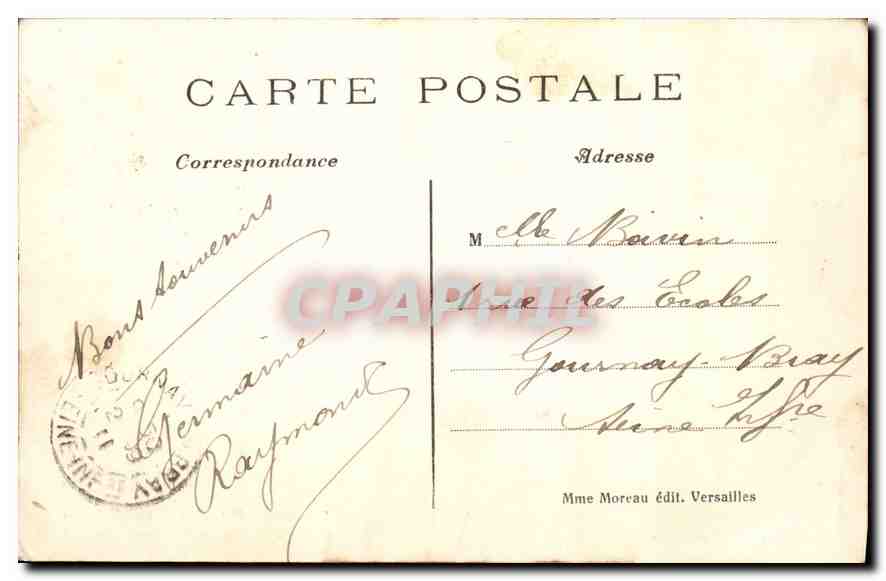 CARTE POSTALE
Correspondance
Adresse
Bons souvenirs
Germaine
Raymond
M elle Boivin
rue des Ecoles
Gournay-Bray
Seine Infre
CPAPHIL
Mme Moreau édit. Versailles